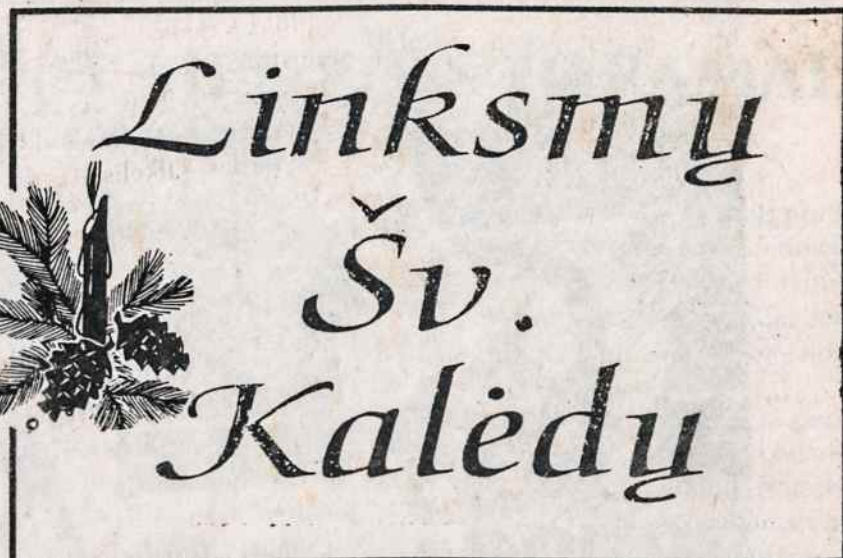 Linksmų
Šv.
Kalėdų